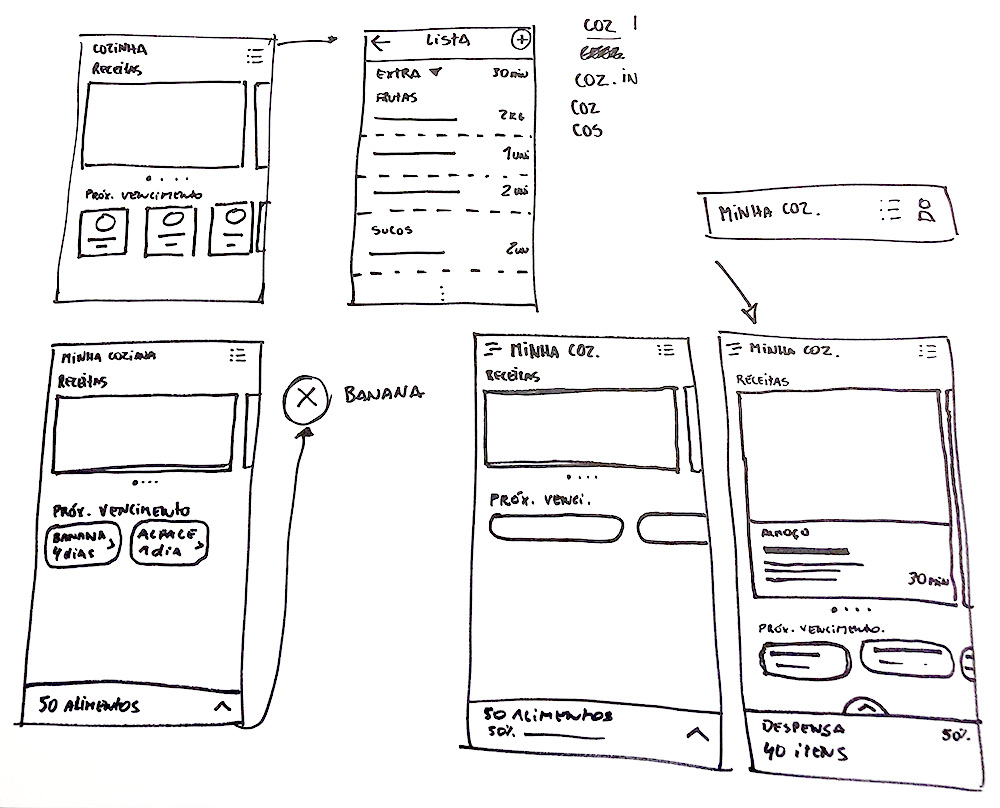 COZINHA
RECEITAS
PRÓX. VENCIMENTO
LISTA
EXTRA
30 min
FRUTAS
2 KG
1 uni
2 uni
SUCOS
2 un
COZ
COZ.IN
COZ
COS
MINHA COZ.
MINHA COZIANA
RECEITAS
PRÓX. VENCIMENTO
BANANA
4 dias
ALFACE
1 dia
50 ALIMENTOS
BANANA
MINHA COZ.
RECEITAS
PRÓX. VENCI.
50 ALIMENTOS
50%
MINHA COZ.
RECEITAS
ALMOÇO
30 min
PRÓX. VENCIMENTO.
DESPENSA
50%
40 ITENS